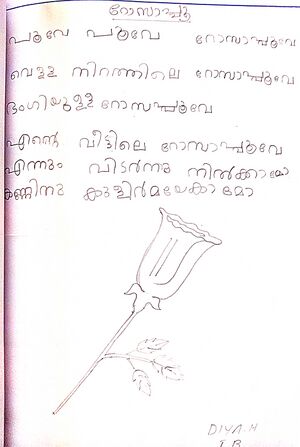 റോസാപ്പൂ
പൂവേ പൂവേ റോസാപ്പൂവേ
വെള്ള നിറത്തിലെ റോസാപ്പൂവേ
ഭംഗിയുള്ള റോസപ്പൂവേ
എന്റെ വീട്ടിലെ റോസാപ്പൂവേ
എന്നും വിടർന്നു നിൽക്കാമോ
കണ്ണിനു കുളിർമയേകാമോ
DIYA.H
I B